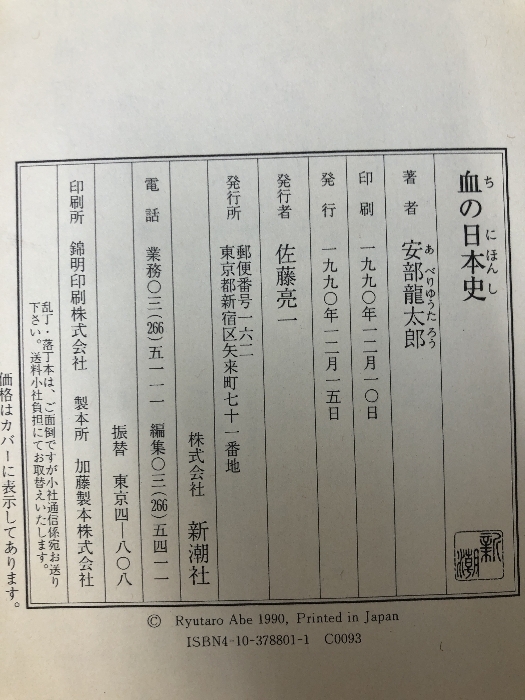 血の日本史
ち　にほんし
著者　安部龍太郎
あべりゆうたろう
印刷　一九九〇年一二月一〇日
発行　一九九〇年一二月一五日
発行者　佐藤亮一
発行所　郵便番号一六二
東京都新宿区矢来町七十一番地
株式会社　新潮社
電話　業務〇三(266)五一一一　編集〇三(266)五四一一
振替　東京四―八〇八
印刷所　錦明印刷株式会社　製本所　加藤製本株式会社
乱丁・落丁本は、ご面倒ですが小社通信係宛お送り
下さい。送料小社負担にてお取替えいたします。
価格はカバーに表示してあります。
新潮
© Ryutaro Abe 1990, Printed in Japan
ISBN4-10-378801-1 C0093